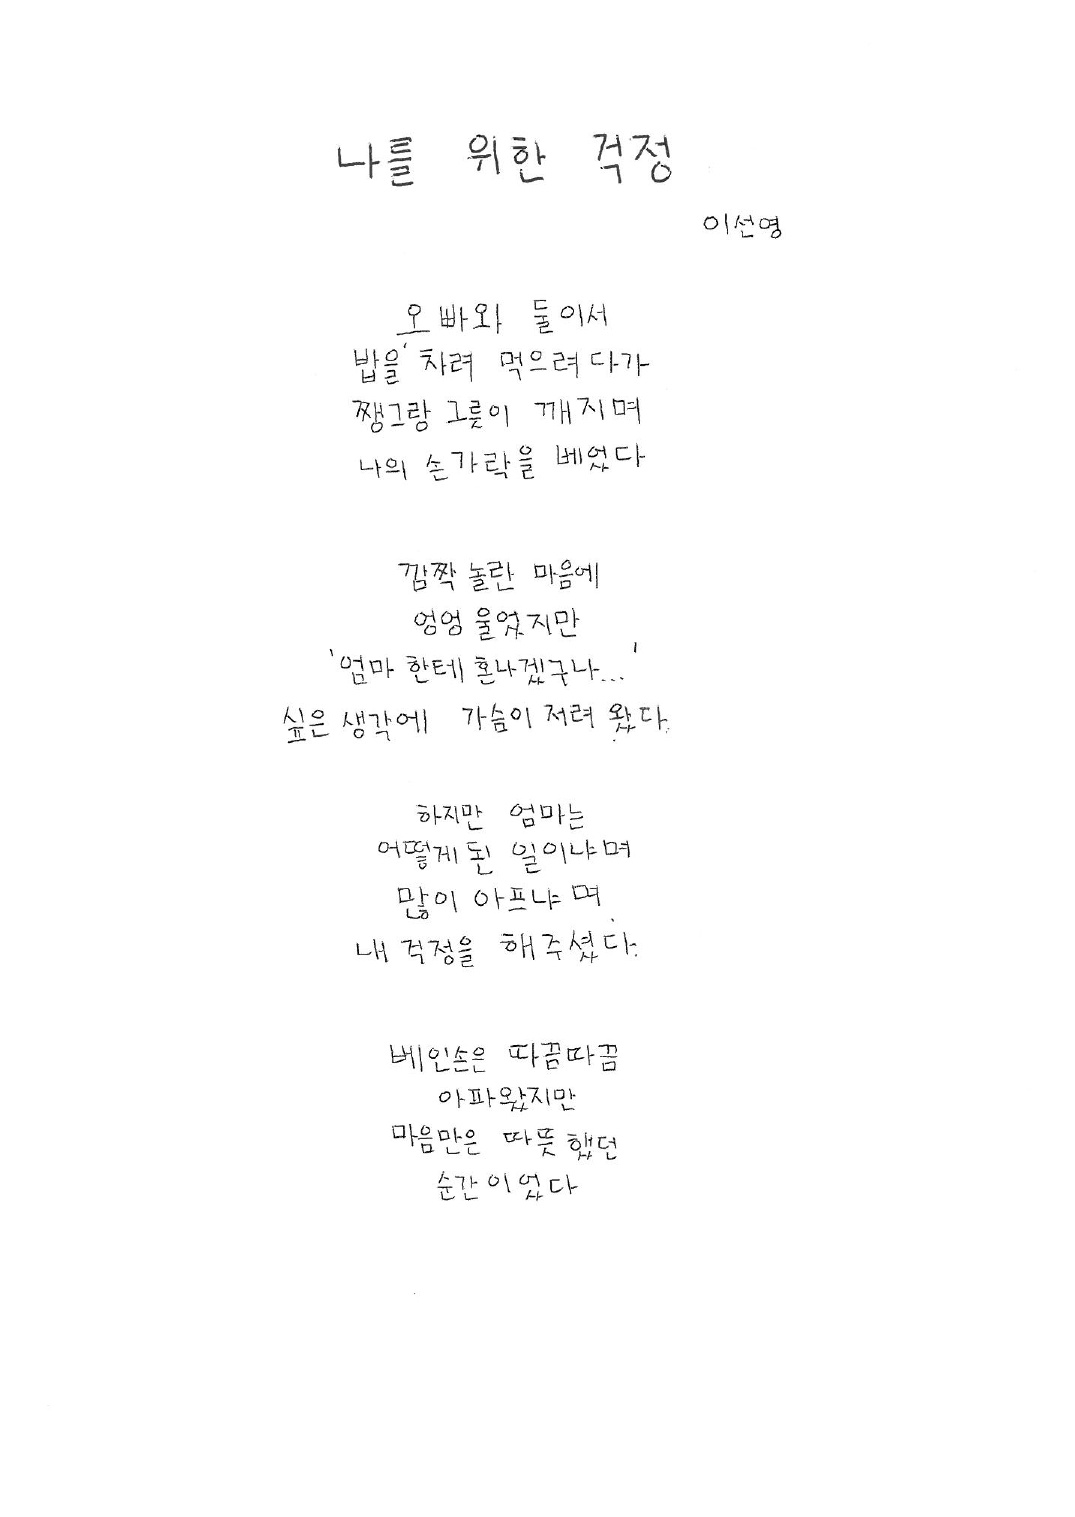 나를 위한 걱정
이선영
오빠와 둘이서
밥을 차려 먹으려다가
쨍그랑 그릇이 깨지며
나의 손가락을 베었다
깜짝 놀란 마음에
엉엉 울었지만
'엄마 한테 혼나겠구나...'
싶은 생각에 가슴이 저려 왔다.
하지만 엄마는
어떻게 된 일이냐며
많이 아프냐며
내 걱정을 해주셨다.
베인손은 따끔따끔
아파왔지만
마음만은 따뜻했던
순간이었다